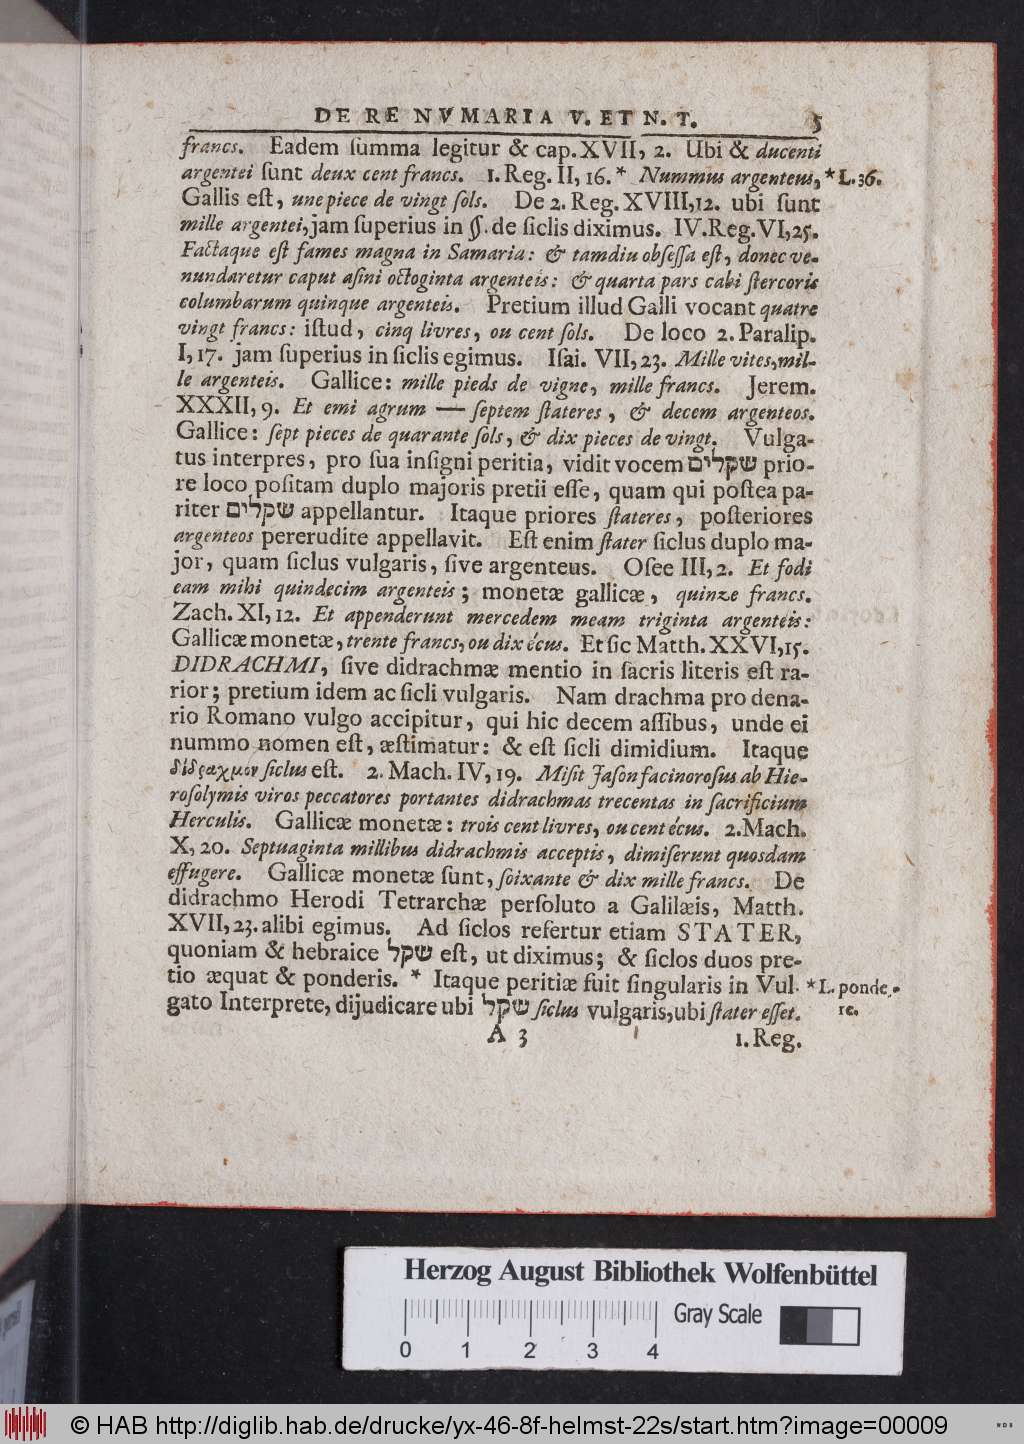 DE RE NVMARIA V. ET N. T. 5
francs. Eadem ſumma legitur & cap. XVII, 2. Ubi & ducenti
argentei ſunt deux cent francs. 1. Reg. II, 16. * Nummus argenteus, * L. 36.
Gallis eſt, une piece de vingt ſols. De 2. Reg. XVIII, 12. ubi ſunt
mille argentei, jam ſuperius in §. de ſiclis diximus. IV. Reg. VI, 25.
Factaque eſt fames magna in Samaria: & tamdiu obſeſſa eſt, donec ve-
nundaretur caput aſini octoginta argenteis: & quarta pars cabi ſtercoris
columbarum quinque argenteis. Pretium illud Galli vocant quatre
vingt francs: iſtud, cinq livres, ou cent ſols. De loco 2. Paralip.
I, 17. jam ſuperius in ſiclis egimus. Iſai. VII, 23. Mille vites, mil-
le argenteis. Gallice: mille pieds de vigne, mille francs. Jerem.
XXXII, 9. Et emi agrum — ſeptem ſtateres, & decem argenteos.
Gallice: ſept pieces de quarante ſols, & dix pieces de vingt. Vulga-
tus interpres, pro ſua inſigni peritia, vidit vocem שקלים prio-
re loco poſitam duplo majoris pretii eſſe, quam qui poſtea pa-
riter שקלים appellantur. Itaque priores ſtateres, poſteriores
argenteos pererudite appellavit. Eſt enim ſtater ſiclus duplo ma-
jor, quam ſiclus vulgaris, ſive argenteus. Oſee III, 2. Et fodi
eam mihi quindecim argenteis; monetæ gallicæ, quinze francs.
Zach. XI, 12. Et appenderunt mercedem meam triginta argenteis:
Gallicæ monetæ, trente francs, ou dix écus. Et ſic Matth. XXVI, 15.
DIDRACHMI, ſive didrachmæ mentio in ſacris literis eſt ra-
rior; pretium idem ac ſicli vulgaris. Nam drachma pro dena-
rio Romano vulgo accipitur, qui hic decem aſſibus, unde ei
nummo nomen eſt, æſtimatur: & eſt ſicli dimidium. Itaque
δίδραχμον ſiclus eſt. 2. Mach. IV, 19. Miſit Jaſon facinoroſus ab Hie-
roſolymis viros peccatores portantes didrachmas trecentas in ſacrificium
Herculis. Gallicæ monetæ: trois cent livres, ou cent écus. 2. Mach.
X, 20. Septuaginta millibus didrachmis acceptis, dimiſerunt quosdam
effugere. Gallicæ monetæ ſunt, ſoixante & dix mille francs. De
didrachmo Herodi Tetrarchæ perſoluto a Galilæis, Matth.
XVII, 23. alibi egimus. Ad ſiclos refertur etiam STATER,
quoniam & hebraice שקל eſt, ut diximus; & ſiclos duos pre-
tio æquat & ponderis. * Itaque peritiæ fuit ſingularis in Vul- * L. ponde-
gato Interprete, dijudicare ubi שקל ſiclus vulgaris, ubi ſtater eſſet. re.
A 3 1. Reg.
Herzog August Bibliothek Wolfenbüttel
Gray Scale
0 1 2 3 4
© HAB http://diglib.hab.de/drucke/yx-46-8f-helmst-22s/start.htm?image=00009